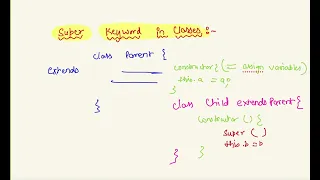 Super Keyword in Classes :-
class Parent {
extends
constructor { (= assign variables)
this.a = a;
}
}
class Child extends Parent {
constructor () {
super ( )
this.b = b
}
}